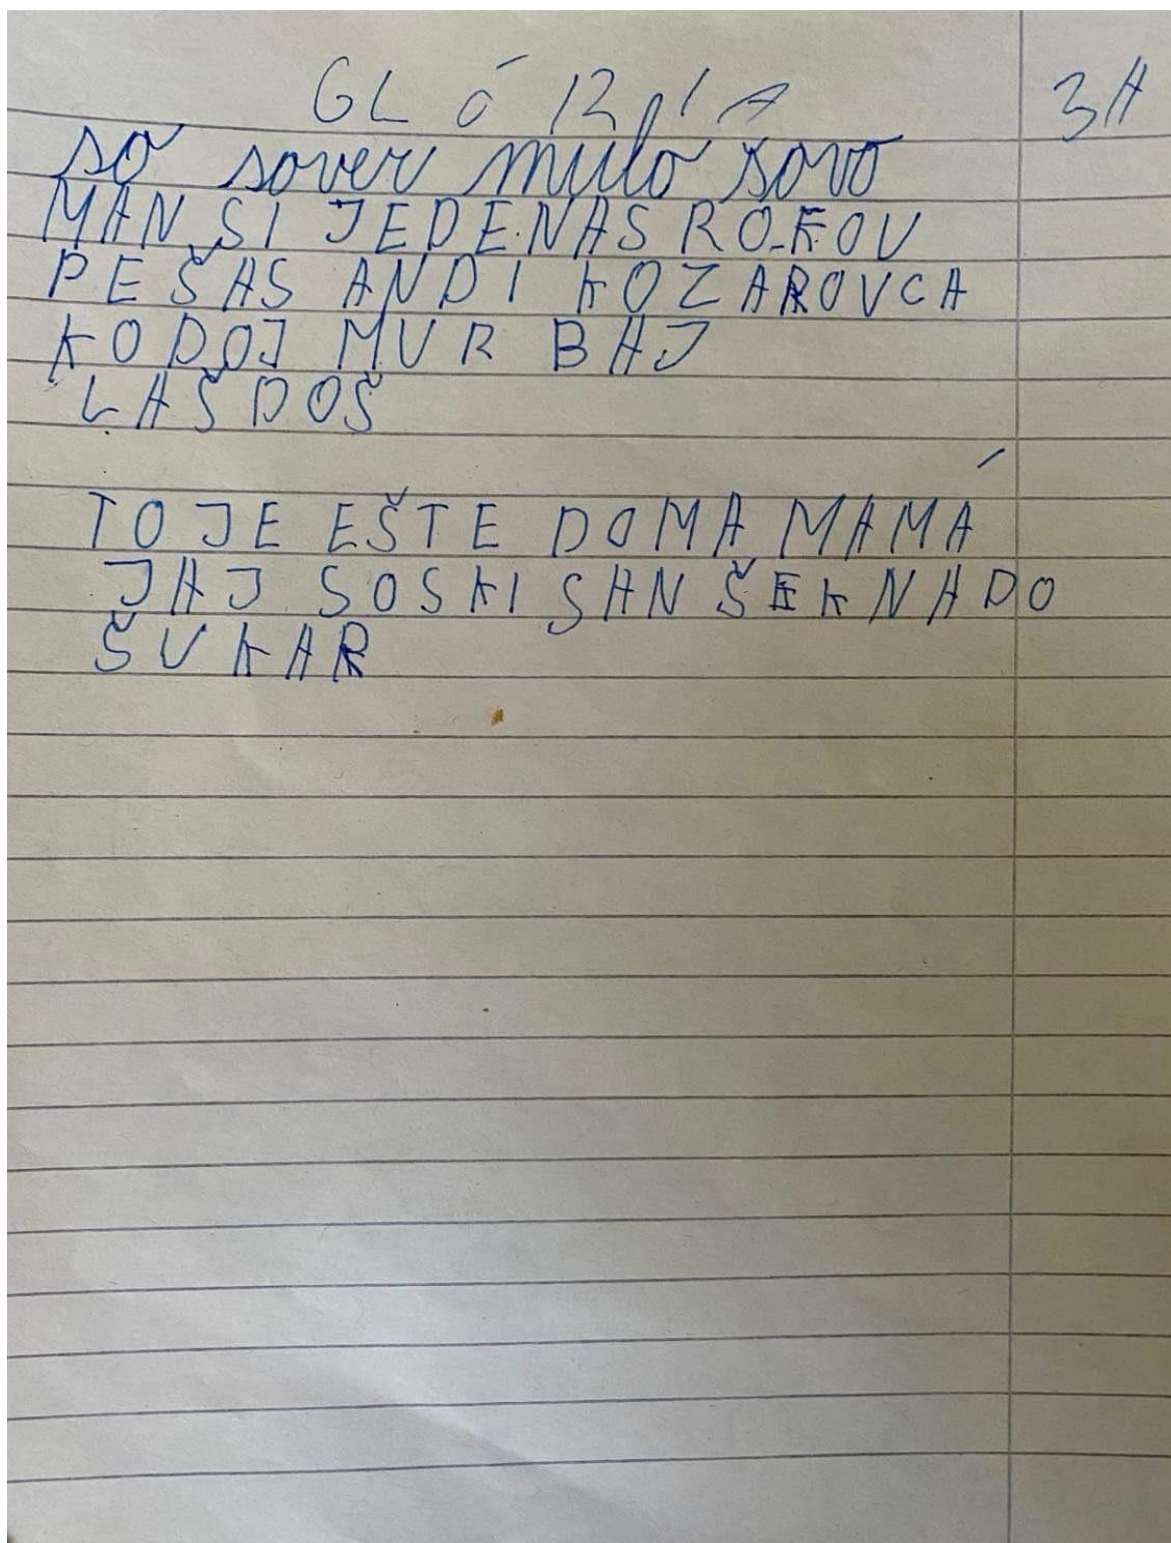 GLÓRIA 3A
so sover mulo sovo
MAN SI JEDENAS ROKOV
PEŠAS ANDI KOZAROVCA
KODOJ MUR BAJ
LAŠDOŠ
TO JE EŠTE DOMA MAMÁ
JAJ SOSKI SAN ŠEKNADO
ŠUKAR